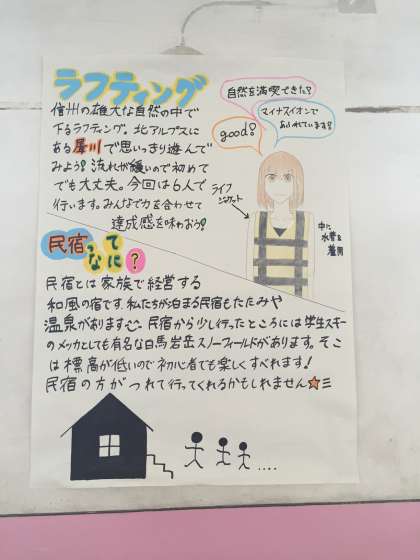 ラフティング
信州の雄大な自然の中で
下るラフティング。北アルプスに
ある犀川で思いっきり遊んで
みよう!流れが緩いので初めて
でも大丈夫。今回は6人で
行います。みんなで力を合わせて
達成感を味わおう!
自然を満喫できた?
マイナスイオンで
あふれています?
good!
ライフ
ジャケット
中に
水着を
着用
民宿ってなに?
民宿とは家族で経営する
和風の宿です。私たちが泊まる民宿もたたみや
温泉があります〜 民宿から少し行ったところには学生スキー
のメッカとしても有名な白馬岩岳スノーフィールドがあります。そこ
は標高が低いので初心者でも楽しくすべれます!
民宿の方がつれて行ってくれるかもしれません☆三
....